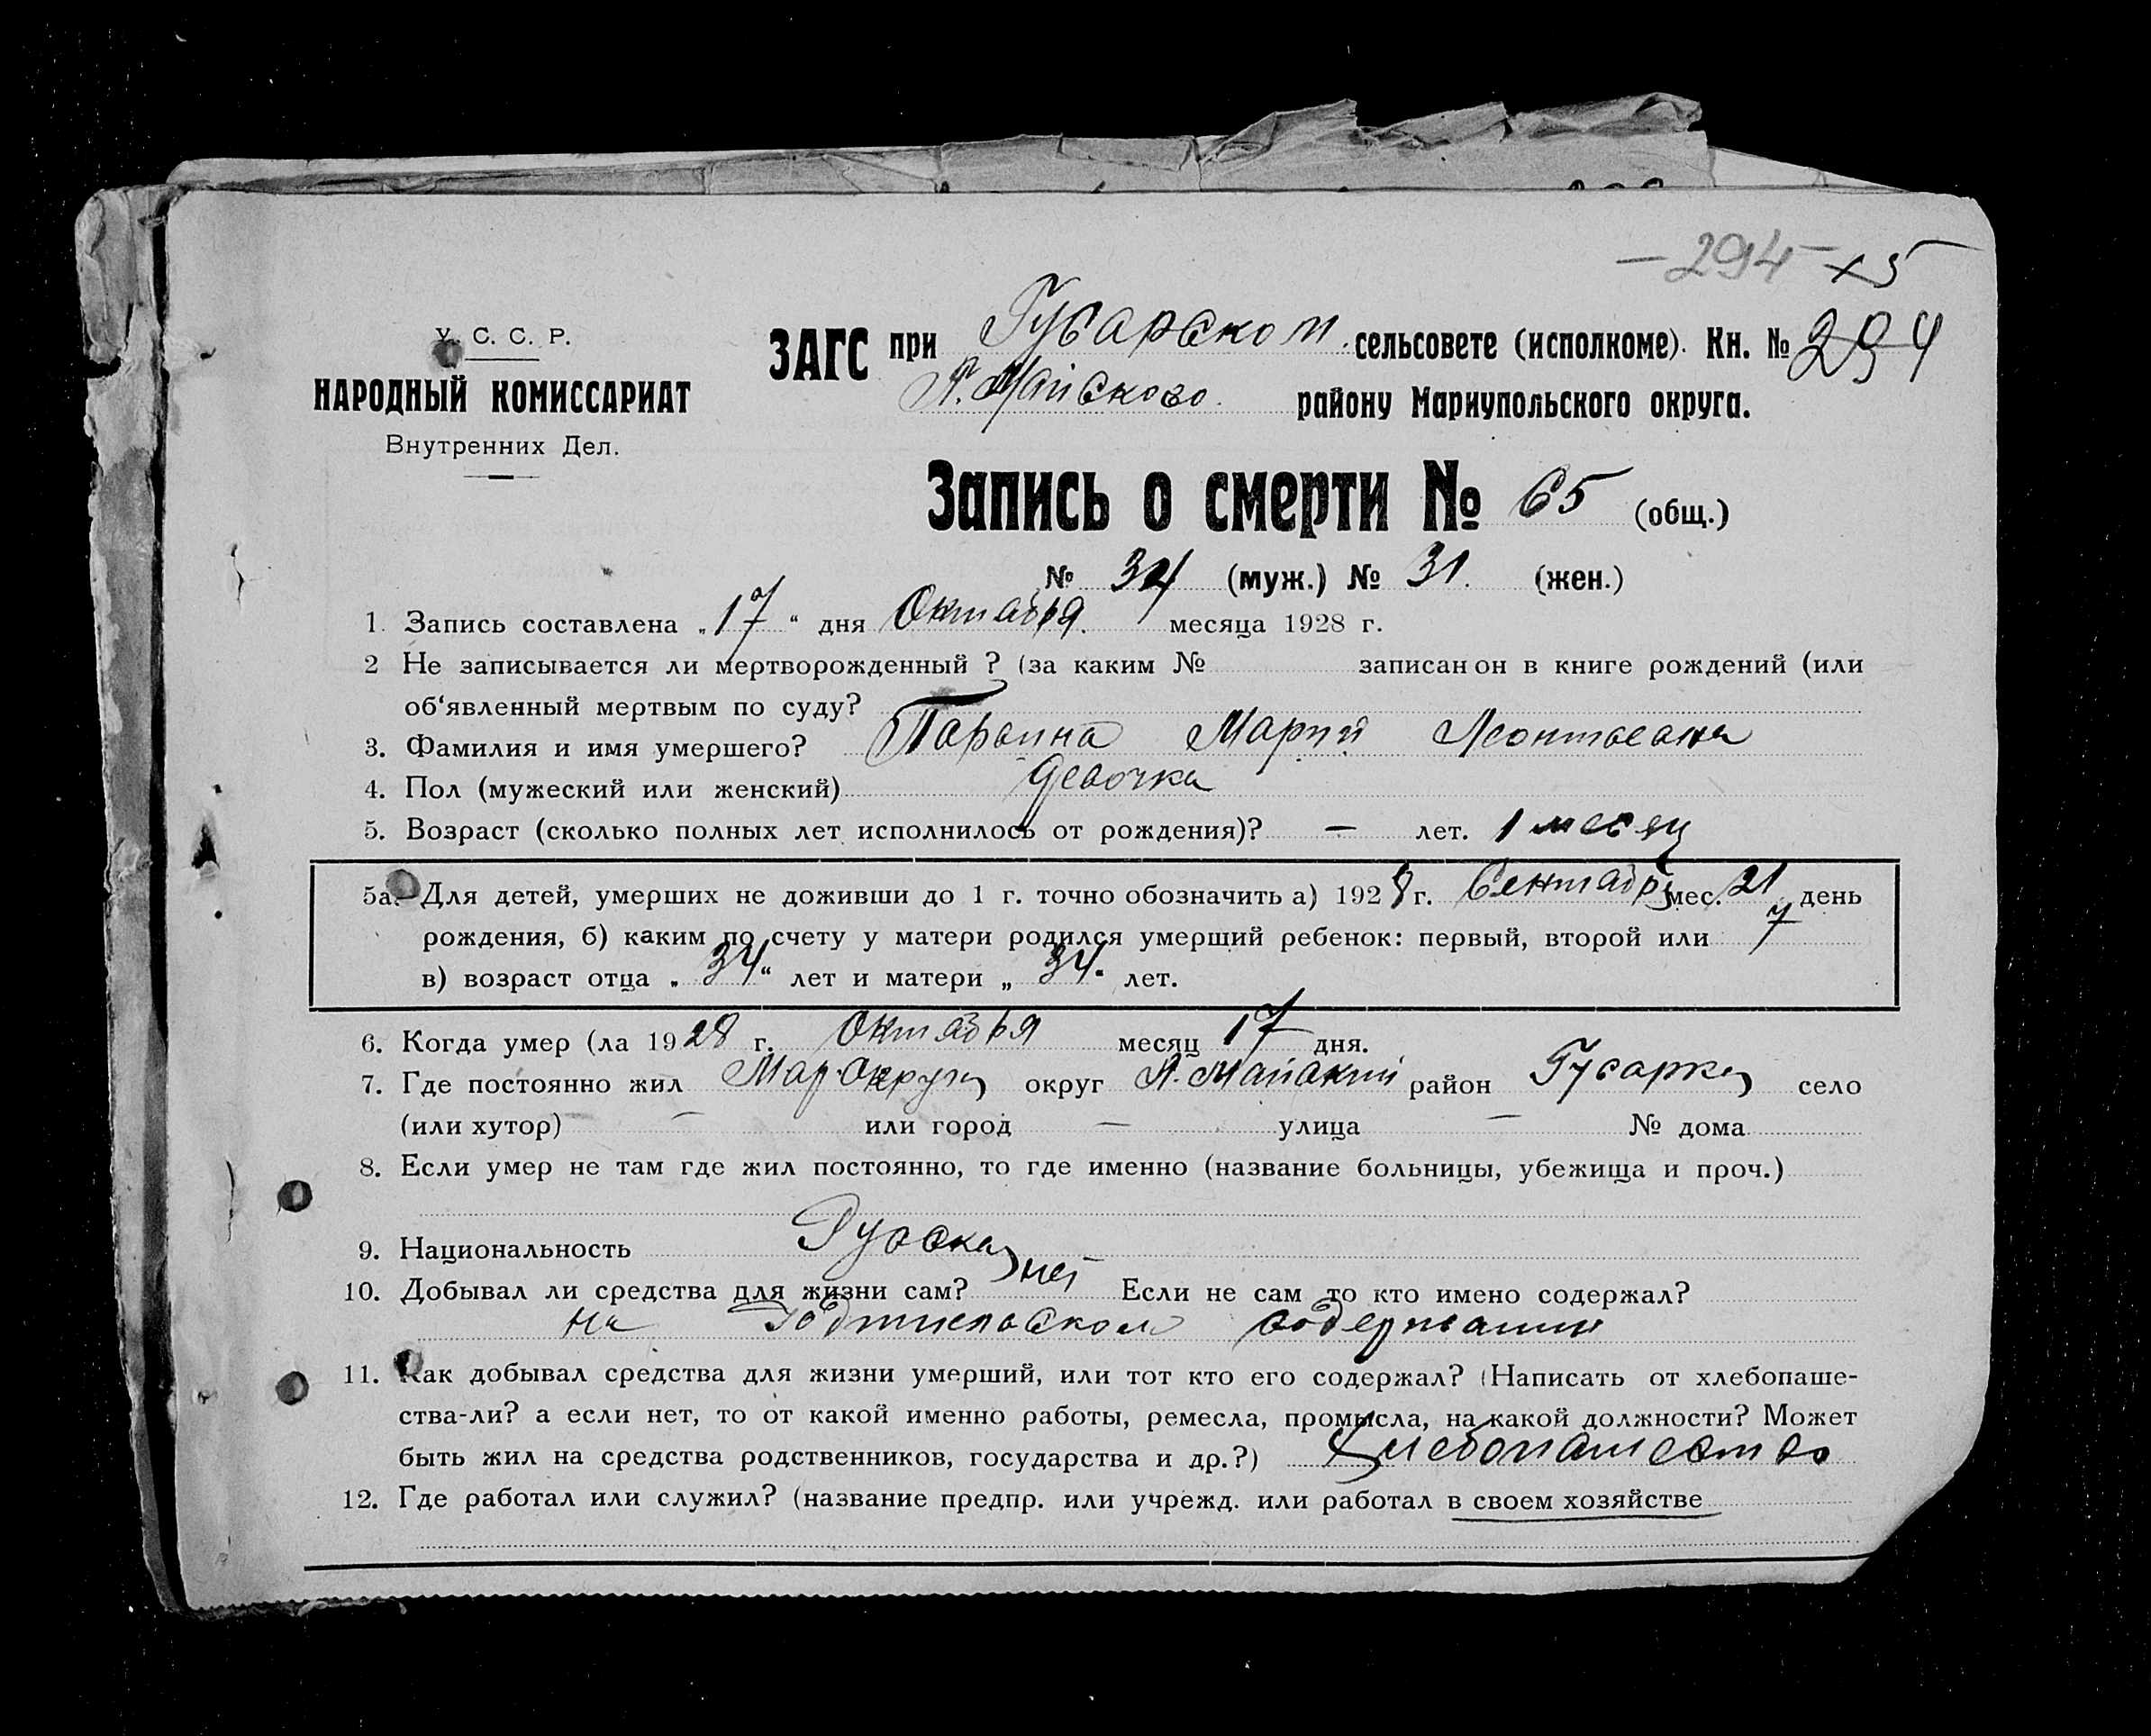 — 294 — х 5
У. С. С. Р.
НАРОДНЫЙ КОМИССАРИАТ
Внутренних Дел.
ЗАГС при Гусарском сельсовете (исполкоме). Кн. № 294
Л. Майского району Мариупольского округа.
Запись о смерти № 65 (общ.)
№ 34 (муж.) № 31. (жен.)
1. Запись составлена „17“ дня Октября. месяца 1928 г.
2 Не записывается ли мертворожденный ? (за каким № записан он в книге рождений (или
об‘явленный мертвым по суду?
3. Фамилия и имя умершего? Мария Леонтьевна
4. Пол (мужеский или женский) Девочка
5. Возраст (сколько полных лет исполнилось от рождения)? — лет. 1 месяц
5а. Для детей, умерших не доживши до 1 г. точно обозначить а) 1928 г. Сентября мес. 21 день
рождения, б) каким по счету у матери родился умерший ребенок: первый, второй или 7
в) возраст отца „34“ лет и матери „34“ лет.
6. Когда умер (ла 1928 г. Октября месяц 17 дня.
7. Где постоянно жил Мар. Округа округ Л. Майский район Гусарка село
(или хутор) — или город — улица — № дома
8. Если умер не там где жил постоянно, то где именно (название больницы, убежища и проч.)
9. Национальность Руская
10. Добывал ли средства для жизни сам? нет Если не сам то кто имено содержал?
на содержании
11. Как добывал средства для жизни умерший, или тот кто его содержал? (Написать от хлебопаше-
ства-ли? а если нет, то от какой именно работы, ремесла, промысла, на какой должности? Может
быть жил на средства родственников, государства и др.?) Хлебопашество
12. Где работал или служил? (название предпр. или учрежд. или работал в своем хозяйстве